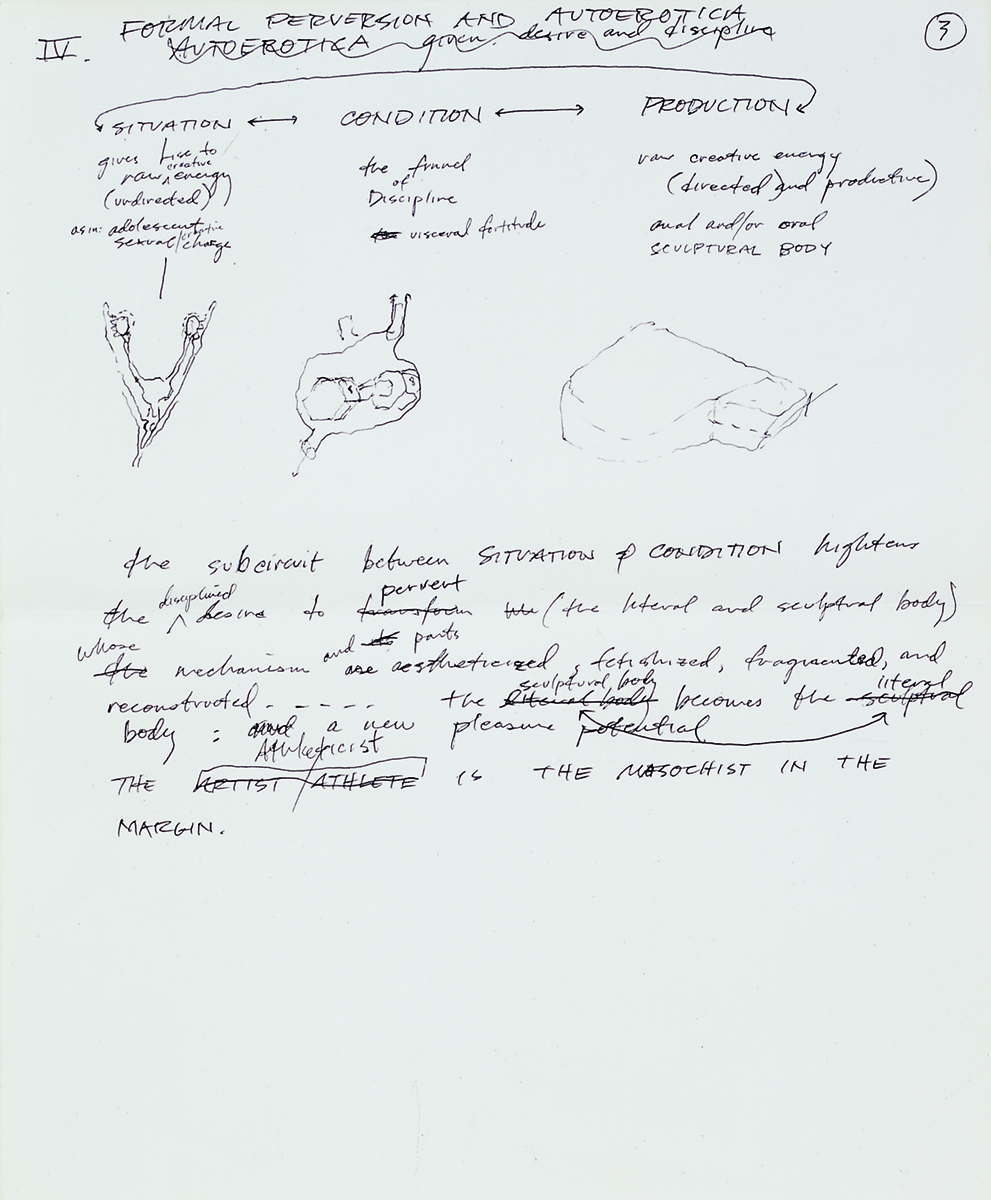 IV. FORMAL PERVERSION AND AUTOEROTICA 3
AUTOEROTICA given: desire and discipline
SITUATION ↔ CONDITION ↔ PRODUCTION
gives rise to
creative
raw energy
(undirected)
as in: adolescent
sexual/creative
charge
the funnel
of
Discipline
visceral fortitude
raw creative energy
(directed) and productive)
anal and/or oral
SCULPTURAL BODY
the subcircuit between SITUATION & CONDITION hightens
the disciplined desire to transform pervert the (the literal and sculptural body)
whose the mechanism and its parts are aestheticized, fetishized, fragmented, and
reconstructed - - - - - the literal body sculptural body becomes the sculptural literal
body : and a new pleasure potential
THE ARTIST / ATHLETE Athleticist IS THE MASOCHIST IN THE
MARGIN.